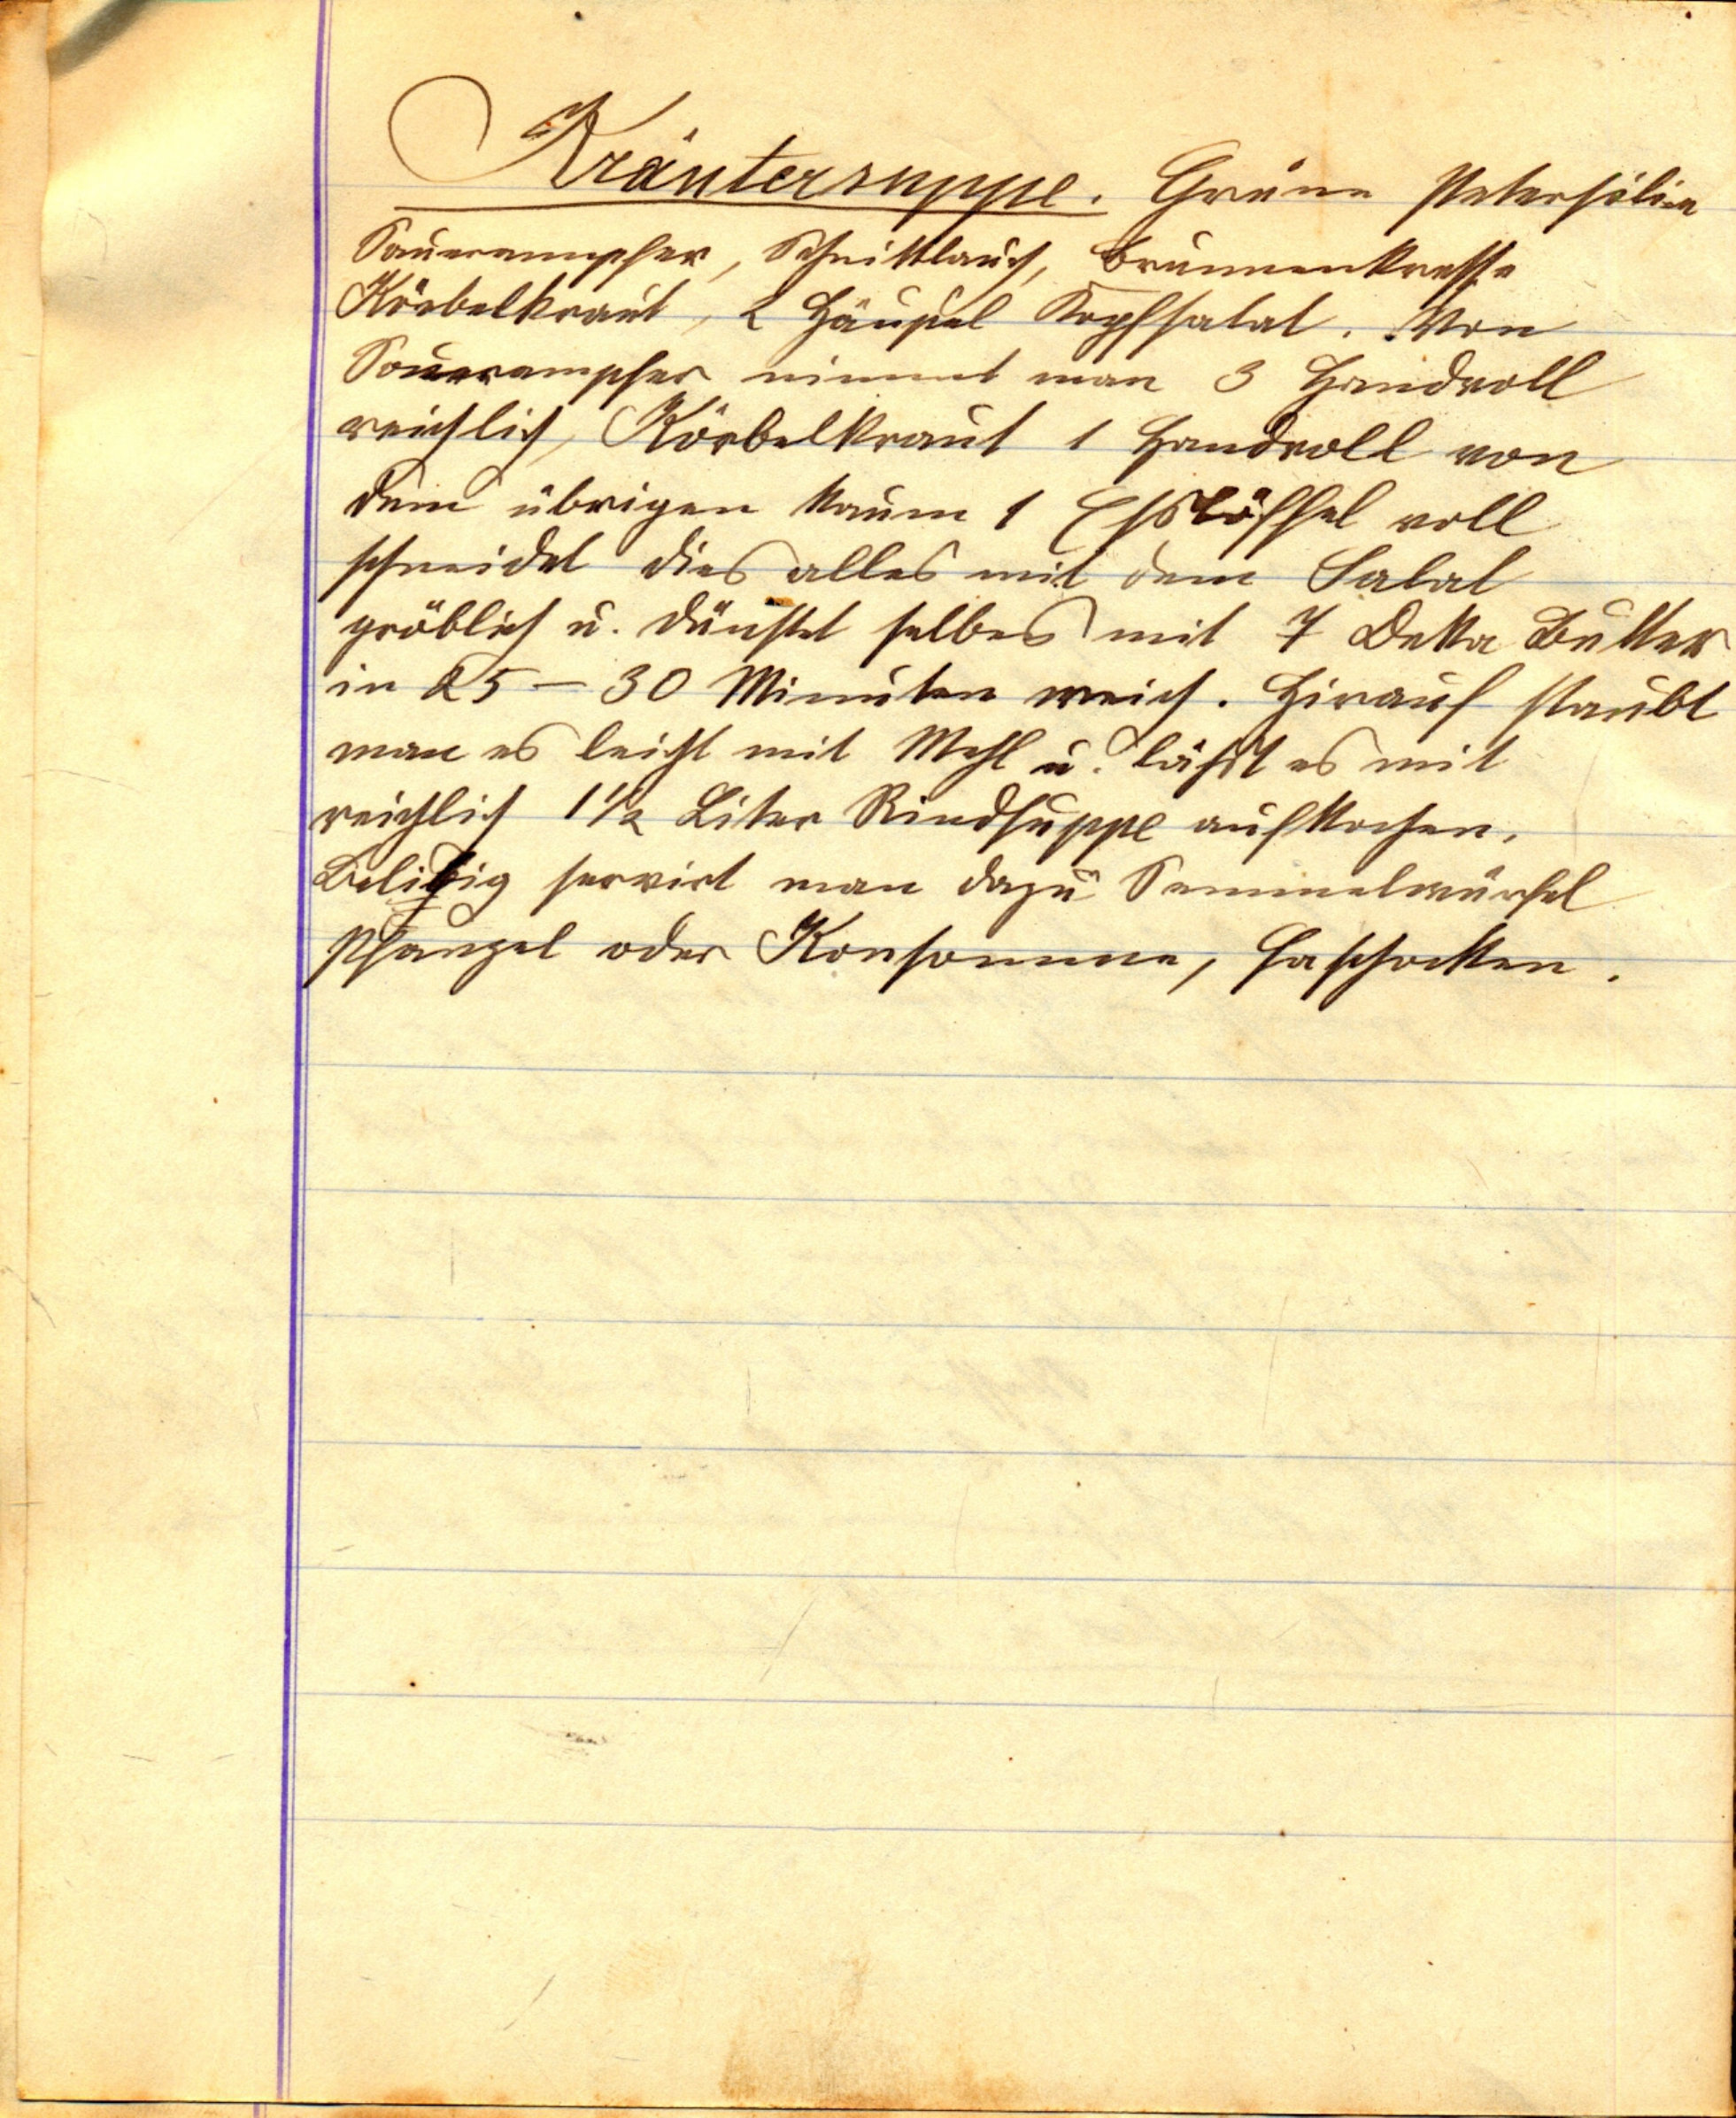 Kräutersuppe. Grüne Petersilie
Sauerampfer, Schnittlauch, Brunnenkresse
Körbelkraut, 2 Häupel Kopfsalat. Von
Sauerampfer nimmt man 3 Handvoll
reichlich, Körbelkraut 1 Handvoll von
dem übrigen kaum 1 Esslöffel voll
schneidet dies alles mit dem Salat
gröblich u. dünstet selbes mit 7 Deka Butter
in 25 – 30 Minuten weich. Hirauf staubt
man es leicht mit Mehl u. läßt es mit
reichlich 1½ Liter Rindsuppe aufkochen.
Belibig servirt man dazu Semmelwürfel
Pfanzel oder Konsomme,